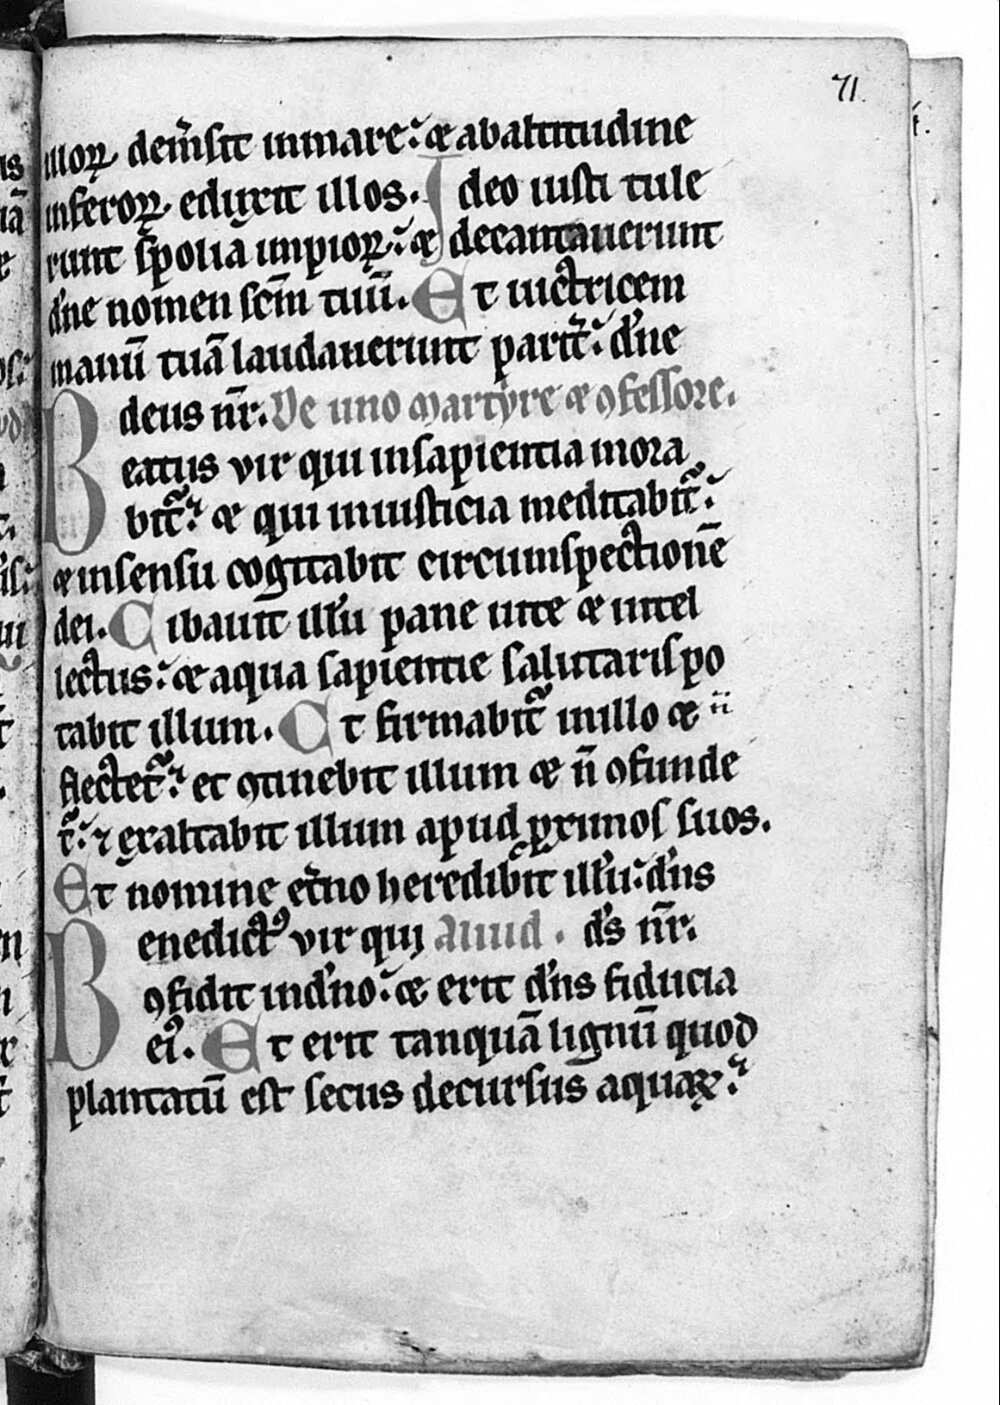 71
illoꝝ dem̄sit in mare: ⁊ ab altitudine
inferoꝝ eduxit illos. Ideo iusti tule
runt spolia impioꝝ: ⁊ decantauerunt
dn̄e nomen scm̄ tuū. Et uictricem
manū tuā laudauerunt parit̄: dn̄e
deus nr̄. De uno martyre ⁊ ꝯfessore.
Beatus vir qui in sapientia mora
bit̄: ⁊ qui in iusticia meditabit̄:
⁊ in sensu cogitabit circumspectionē
dei. Cibauit illū pane uite ⁊ intel
lectus: ⁊ aqua sapientie salutaris po
tabit illum. Et firmabit̄ in illo ⁊ n̄
flectet̄: et ꝯtinebit illum ⁊ n̄ ꝯfunde
t̄: ⁊ exaltabit illum apud ꝓximos suos.
Et nomine et̄no heredib̄it illū: dn̄s
Benedictꝰ vir qui Aliud. ds̄ nr̄.
ꝯfidit in dn̄o: ⁊ erit dn̄s fiducia
eiꝰ. Et erit tanquā lignū quod
plantatū est secus decursus aquaꝝ: